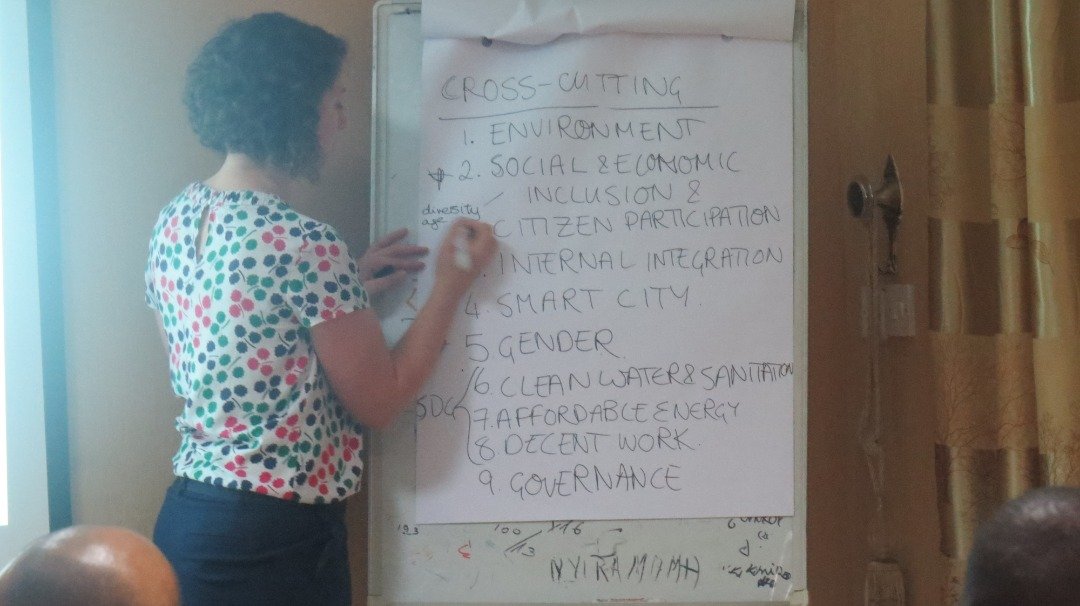 CROSS-CUTTING
1. ENVIRONMENT
2. SOCIAL & ECONOMIC
INCLUSION &
diversity
age
CITIZEN PARTICIPATION
INTERNAL INTEGRATION
4. SMART CITY.
5 GENDER
6. CLEAN WATER & SANITATION
SDG
7. AFFORDABLE ENERGY
8. DECENT WORK.
9. GOVERNANCE
123
100
816